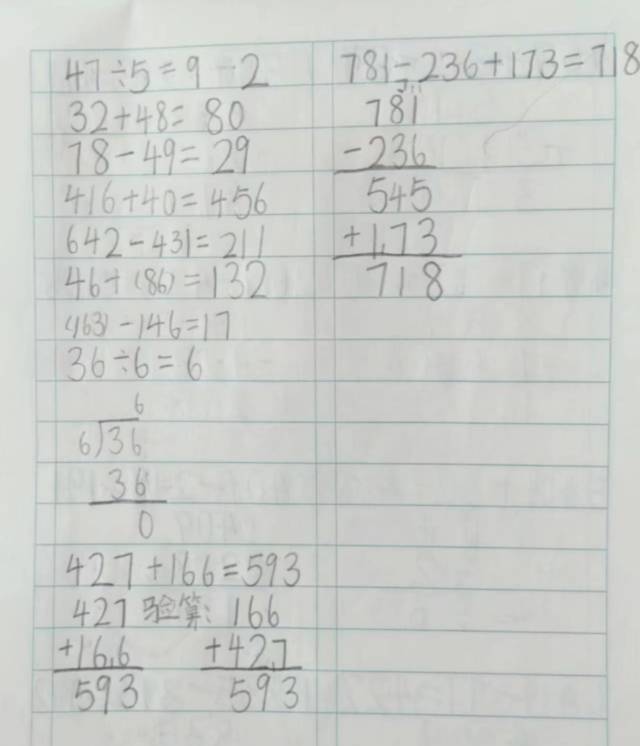 47÷5=9…2
32+48=80
78-49=29
416+40=456
642-431=211
46+(86)=132
(163)-146=17
36÷6=6
6
6)36
36
0
427+166=593
427 验算: 166
+166 +427
593 593
781-236+173=718
781
-236
545
+173
718